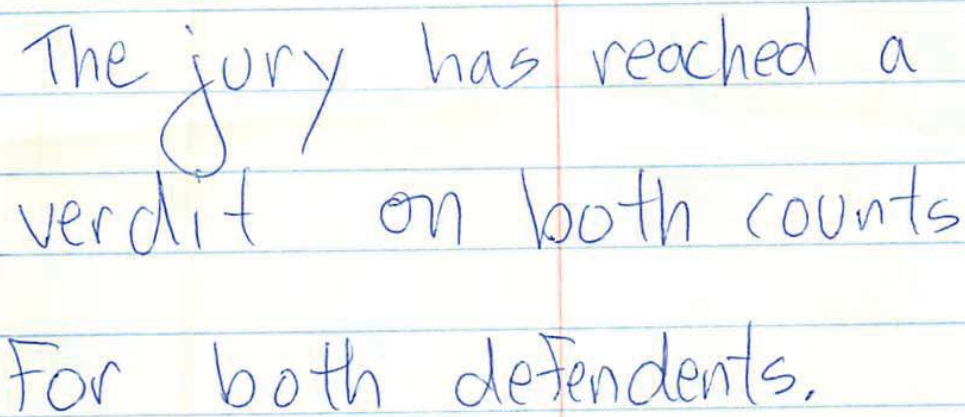 The jury has reached a
verdit on both counts
For both defendents.